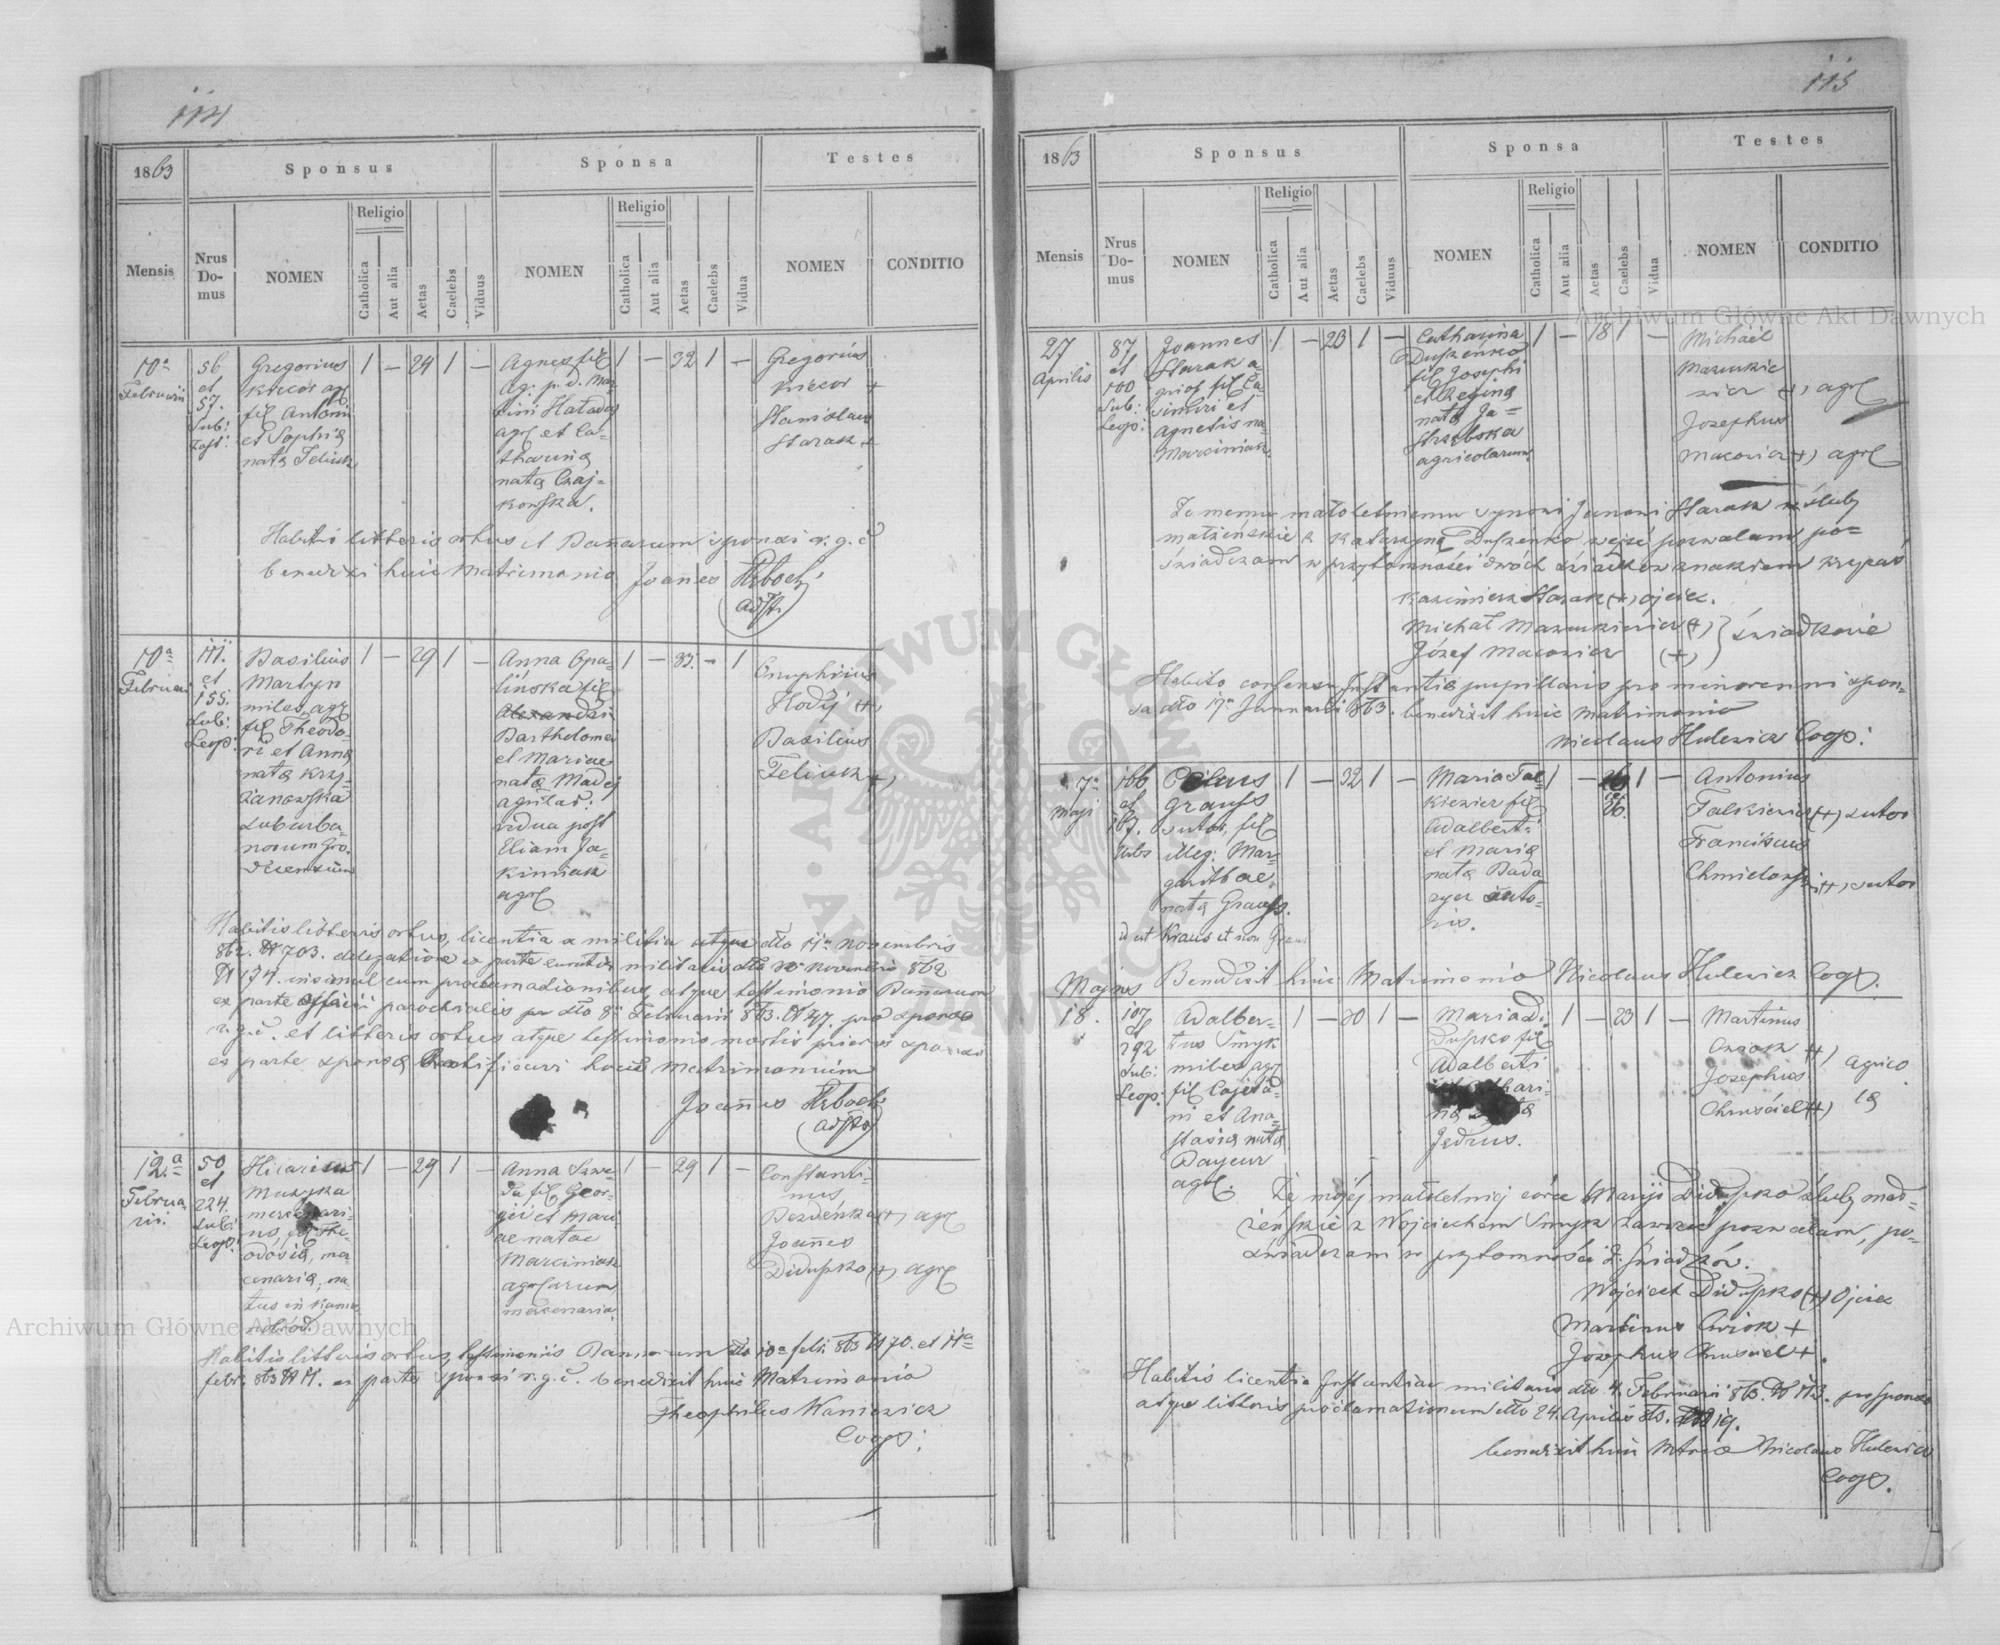 114
1863
Sponsus
Sponsa
Testes
Mensis
Nrus Do-mus
NOMEN
Religio
Catholica
Aut alia
Aetas
Caelebs
Viduus
NOMEN
Religio
Catholica
Aut alia
Aetas
Caelebs
Vidua
NOMEN
CONDITIO
10a
Februarii
56
et
57.
Sub:
Gregorius
fil Antonii
et Sophia
1 – 24 1 –
Agnes fil
Catharina
nata Czaj-
kowska.
1 – 32 1 –
Gregorius
+
Stanislaus
Starak +
Habitis litteris ortus et Bannorum sponsi r. g. c.
benedixi huic Matrimonio Joannes
10a
Februarii
et
155.
Sub:
Leop:
Basilius
Martyn
miles agr
fil Theodo-
ri et Anna
nata Krzy-
żanowska
Suburba-
norum Gro-
1 – 29 1 –
Anna Opa-
lińska fil
Alexandri
Bartholomei
et Mariae
nata Madej
vidua post
Eliam Ja-
kimiak
agr
1 – 33. – 1
Onuphrius
Hodÿ (+)
Basilius
Feliusz +)
Habitis litteris ortus, licentia a militia atque dto 11a Novembris
862. N 703. delegatione ex parte militaris dto Novembris 862
N 174. insimul cum proclamationibus, atque testimonio Bannorum
ex parte officii parochialis dto 8a Februarii 863. N 47. pro sponso
r. g. c. et litteris ortus atque testimonio mortis prioris sponsi
ex parte sponsa
Joannes
12a
Februa-
rii.
50
et
224.
Sub:
Leop:
Hilarius
Muzyka
mercenari-
us, fil The-
odosia, mer-
cenaria, na-
tus in Kama-
1 – 29 1 –
Anna Szwe-
da fil Geor-
gii et Mari-
ae natae
Marciniak
agrlarum
mercenaria.
1 – 29 1 –
Constanti-
nus
Bezdenka (+) agr
Joannes
Diduszko (+) agr
Habitis litteris ortus, testimoniis Bannorum dto 10a febr: 863 N 70. et 11a
febr. 863 N 11. ex parte sponsi r. g. c. benedixit huic Matrimonio
Theophilus Kaniewicz
Coop:
115
1863
Sponsus
Sponsa
Testes
Mensis
Nrus Do-mus
NOMEN
Religio
Catholica
Aut alia
Aetas
Caelebs
Viduus
NOMEN
Religio
Catholica
Aut alia
Aetas
Caelebs
Vidua
NOMEN
CONDITIO
27
Aprilis
87
et
100
Sub:
Leop:
Joannes
Starak a-
gricol fil Ca-
simiri et
Agnetis na-
Marciniak.
1 – 23 1 –
Catharina
Duszeńko
fil Josephi
et Regina
nata Ja-
strzębska
agricolarum.
1 – 18 1 –
Michaël
Mazurkie-
wicz (+) agr
Josephus
Macowicz (+) agr
Że memu małoletniemu synowi Janowi Starak w śluby
małżeńskie z Katarzyną Duszeńko wejść pozwalam po-
świadczam w przytomności dwóch świadków znakiem krzyża
Kazimierz Starak (+) ojciec.
Michał Mazurkiewicz (+)
Józef Macowicz (+) } świadkowie
Habito consensu Instantia pupillaris pro minorenni spon-
sa dto 17a Januarii 863. benedixit huic Matrimonio
Nicolaus Hulewicz Coop:
7a
Maji
166
et
167.
Urbs
Grauss
sutor, fil
illeg: Mar-
garithae
nata Grauss.
id est Kraus et non Graus
1 – 32 1 –
Maria Fal-
kiewicz fil
Adalberti
et Maria
nata Bada-
1 – 26 1 –
26.
Antonius
Falkiewicz (+) sutor
Franciscus
Chmielowski (+) sutor
Benedixit huic Matrimonio Nicolaus Hulewicz Coop.
Majus
18.
107
et
292
Sub:
Leop:
Adalber-
tus Smyk
miles agr
fil Cajeta-
ni et Ana-
stasia nata
Bayeur
agr.
1 – 30 1 –
Maria Di-
duszko fil
Adalberti
Jedrus.
1 – 23 1 –
Martinus
Cwiok (+)
Josephus
Chruściel (+)
agrico
la
Że mojéj małoletniej córce Maryi Diduszko śluby mał-
żeńskie z Wojciechem Smyk zawrzeć pozwalam, po-
świadczam w przytomności 2. świadków.
Wojciech Diduszko (+) Ojciec
Martinus Cwiok +
Josephus Chruściel +.
Habitis licentia Instantiae militaris dto 4. Februarii 863. N 113. pro sponso
atque litteris proclamationum dto 24. Aprilis 863. N 19.
benedixit huic Mtrio Nicolaus Hulewicz
Coop.
Archiwum Główne Akt Dawnych
Archiwum Główne Akt Dawnych
ARCHIWUM GŁÓWNE AKT DAWNYCH